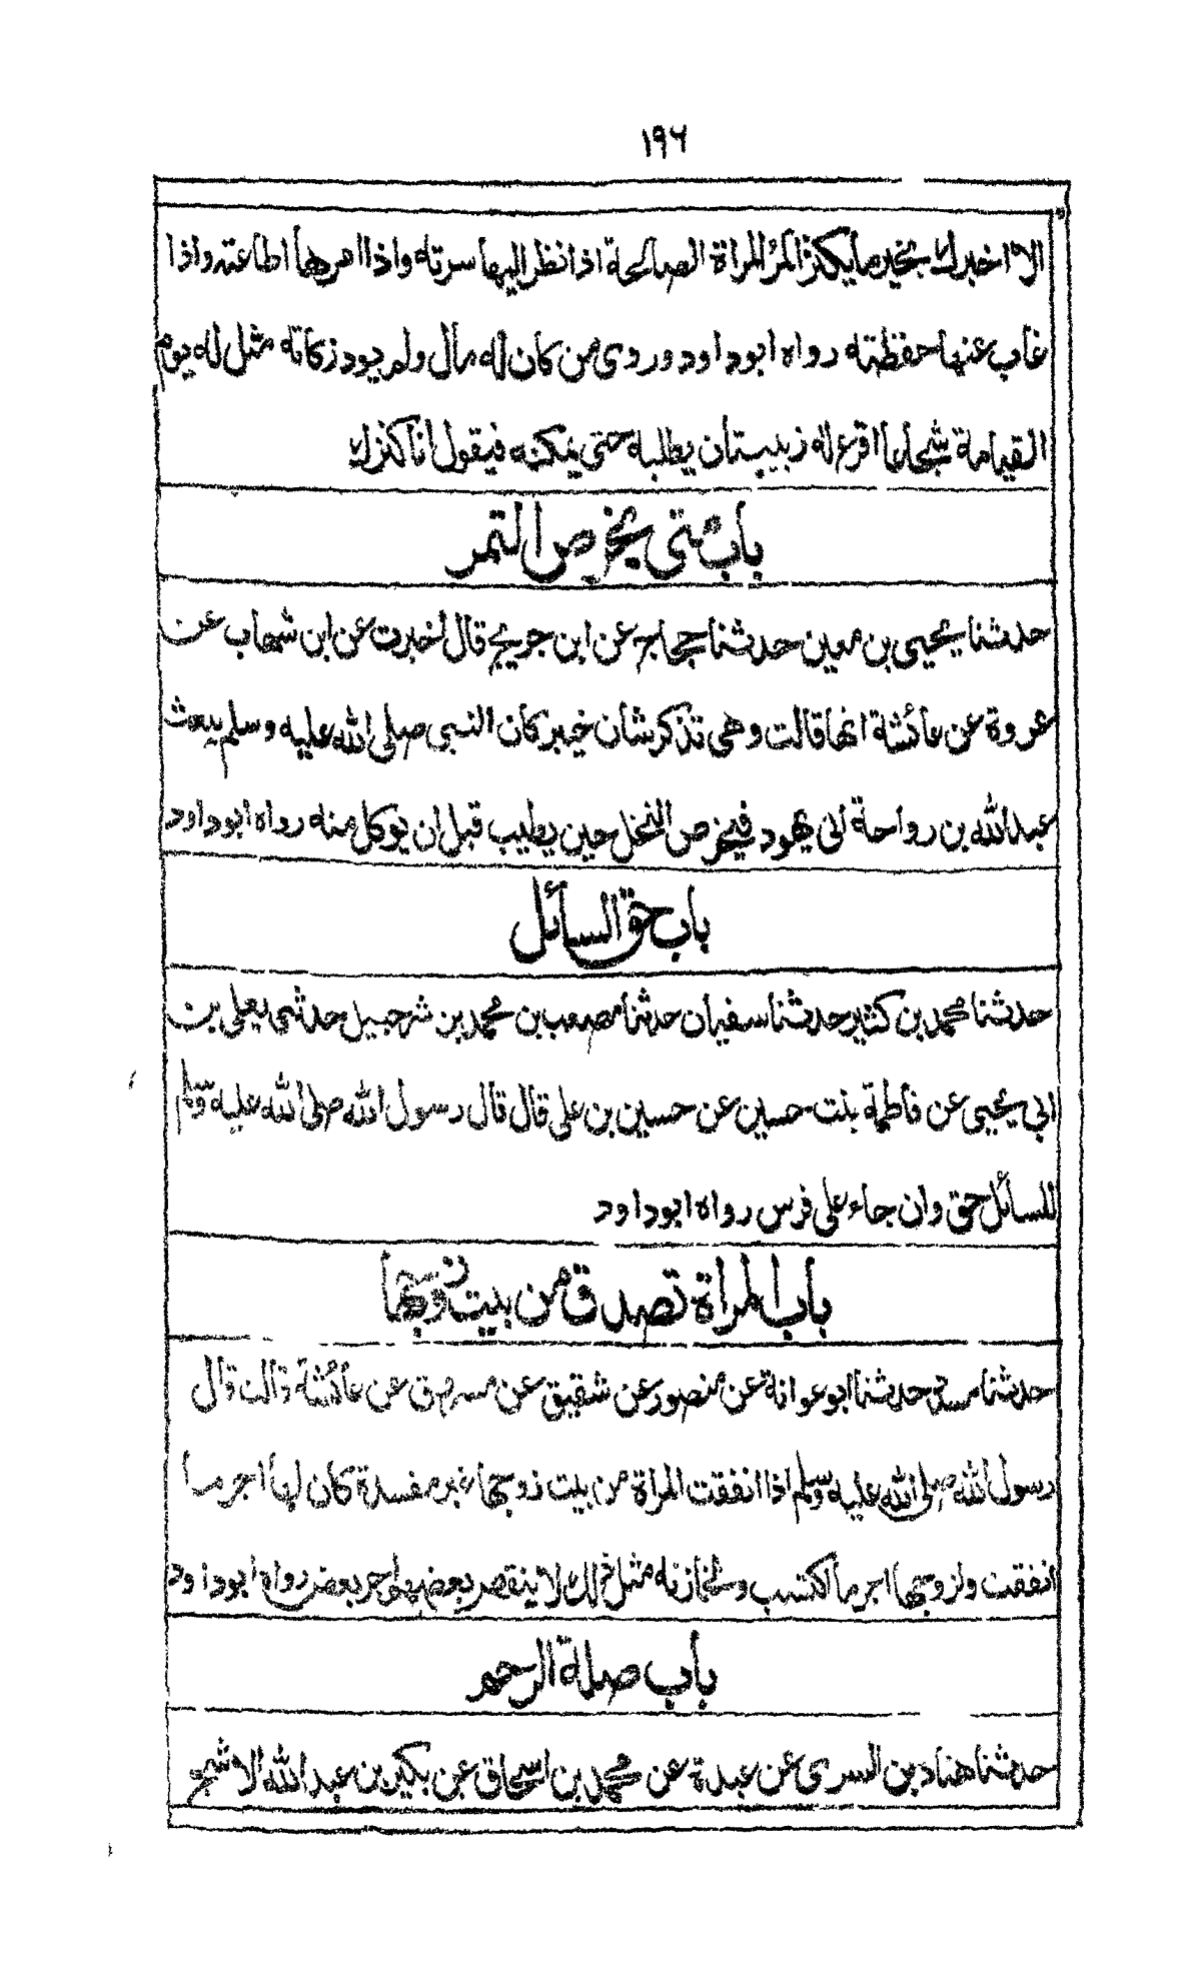 ١٩٦
الا اخبرك بخير ما يكنز المرٔ المراة الصالحة اذا نظر اليها سرته واذا امرها اطاعته واذا
غاب عنها حفظته رواه ابوداود وروى من كان له مال ولم يود زكاته مثل له يوم
القيامة شجاعا اقرع له زبيبتان يطلبه حتى يمكنه فيقول انا كنزك
باب متى يخرص التمر
حدثنا يحيى بن معين حدثنا حجاج عن ابن جريج قال اخبرت عن ابن شهاب عن
عروة عن عائشة انها قالت وهى تذكر شان خيبر كان النبى صلى الله عليه وسلم يبعث
عبد الله بن رواحة الى يهود فيخرص النخل حين يطيب قبل ان يوكل منه رواه ابوداود
باب حق السائل
حدثنا محمد بن كثير حدثنا سفيان حدثنا مصعب بن محمد بن شرحبيل حدثنى يعلى بن
ابى يحيى عن فاطمة بنت حسين عن حسين بن على قال قال رسول الله صلى الله عليه وسلم
للسائل حق وان جاء على فرس رواه ابوداود
باب المراة تصدق من بيت زوجها
حدثنا مسدد حدثنا ابوعوانة عن منصور عن شقيق عن مسروق عن عائشة قالت قال
رسول الله صلى الله عليه وسلم اذا انفقت المراة من بيت زوجها غير مفسدة كان لها اجر ما
انفقت ولزوجها اجر ما اكتسب ولخازنه مثل ذلك لا ينقص بعضهم اجر بعض رواه ابوداود
باب صلة الرحم
حدثنا هناد بن السرى عن عبدة عن محمد بن اسحاق عن بكير بن عبد الله الاشج